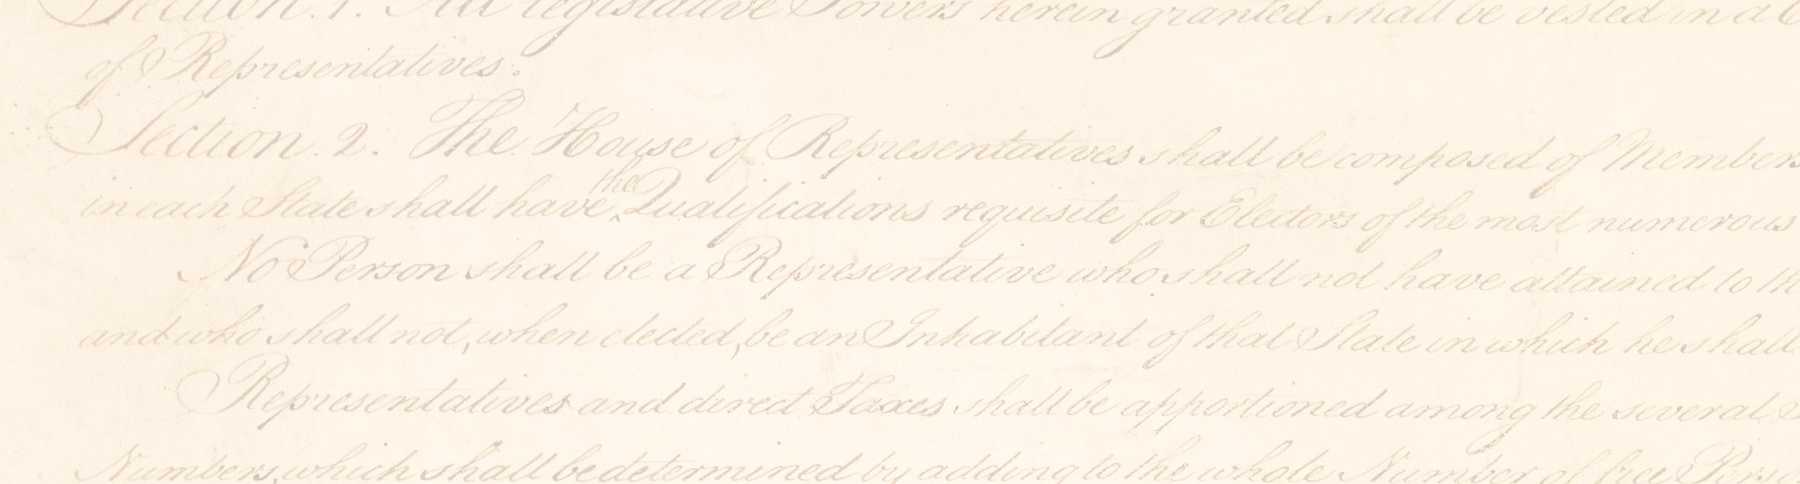 Section. 1. All legislative Powers herein granted shall be vested in a
of Representatives.
Section. 2. The House of Representatives shall be composed of Members
the
in each State shall have Qualifications requisite for Electors of the most numerous
No Person shall be a Representative who shall not have attained to th
and who shall not, when elected, be an Inhabitant of that State in which he shall
Representatives and direct Taxes shall be apportioned among the several
Numbers, which shall be determined by adding to the whole Number of free Perso